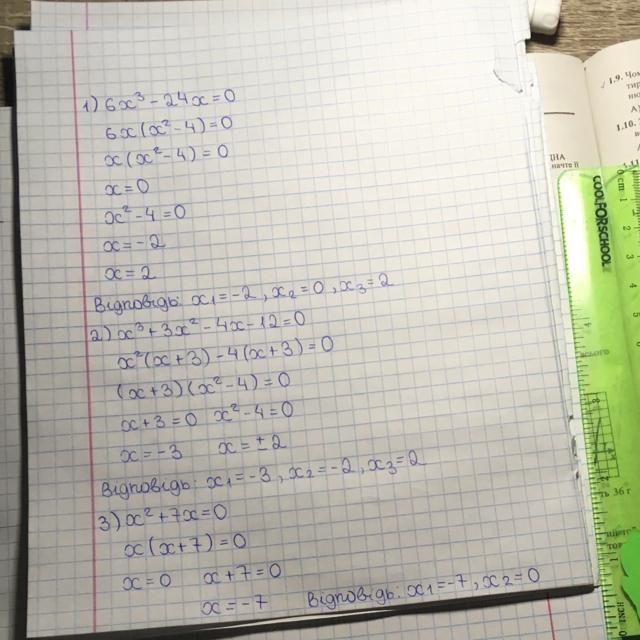 1) 6x³ - 24x = 0
6x(x² - 4) = 0
x(x² - 4) = 0
x = 0
x² - 4 = 0
x = -2
x = 2
Відповідь: x₁ = -2, x₂ = 0, x₃ = 2
2) x³ + 3x² - 4x - 12 = 0
x²(x + 3) - 4(x + 3) = 0
(x + 3)(x² - 4) = 0
x + 3 = 0 x² - 4 = 0
x = -3 x = ±2
Відповідь: x₁ = -3, x₂ = -2, x₃ = 2
3) x² + 7x = 0
x(x + 7) = 0
x = 0 x + 7 = 0
x = -7 Відповідь: x₁ = -7, x₂ = 0
√1.9. Чо
тир
ню
1.10.
ДНА
начте її
COOLFORSCHOOL
cm 1
2
3
4
5
6
всього
ть 36 г